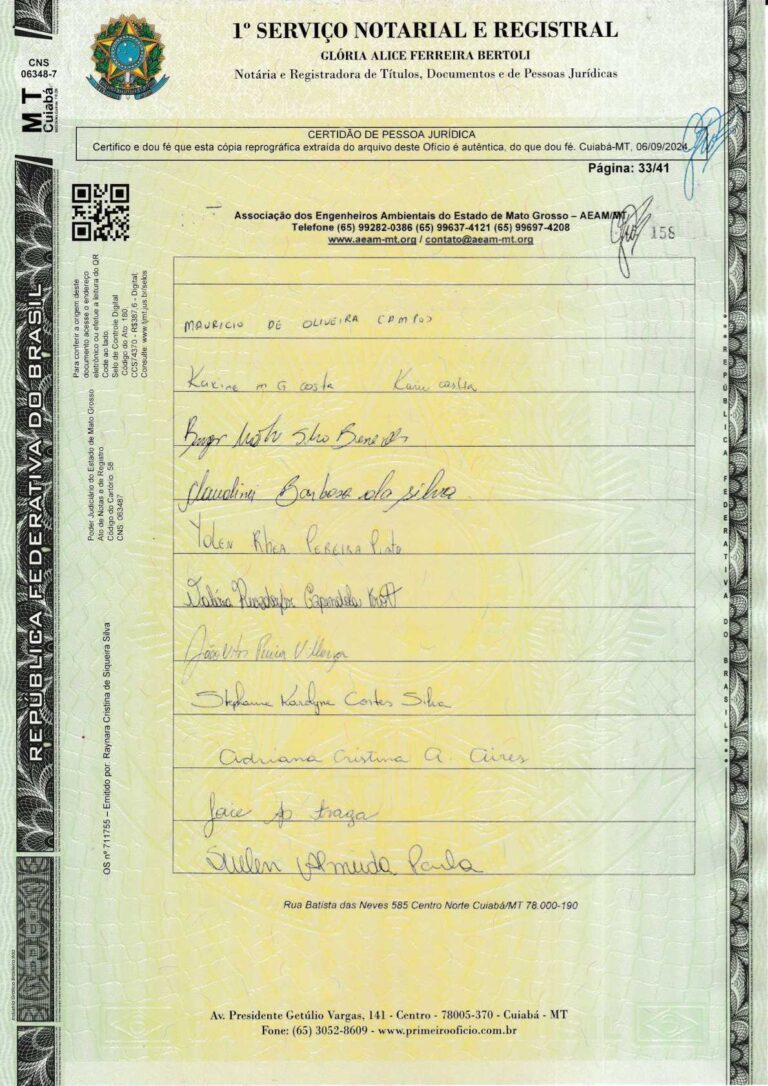 1º SERVIÇO NOTARIAL E REGISTRAL
GLÓRIA ALICE FERREIRA BERTOLI
Notária e Registradora de Títulos, Documentos e de Pessoas Jurídicas
CNS
06348-7
MT
Cuiabá
CERTIDÃO DE PESSOA JURÍDICA
Certifico e dou fé que esta cópia reprográfica extraída do arquivo deste Ofício é autêntica, do que dou fé. Cuiabá-MT, 06/09/2024
Página: 33/41
Associação dos Engenheiros Ambientais do Estado de Mato Grosso – AEAM/MT
Telefone (65) 99282-0386 (65) 99637-4121 (65) 99697-4208
www.aeam-mt.org / contato@aeam-mt.org
158
Para conferir a origem deste
documento acesse o endereço
eletrônico ou efetue a leitura do QR
Code ao lado.
Selo de Controle Digital
Código do Ato: 180
CCS74370 - R$387,6 - Digital;
Consulte: www.tjmt.jus.br/selos
Poder Judiciário do Estado de Mato Grosso
Ato de Notas e de Registro
Código do Cartório: 58
CNS: 063487
OS nº 711755 – Emitido por: Raynara Cristina de Siqueira Silva
REPÚBLICA FEDERATIVA DO BRASIL
MAURICIO DE OLIVEIRA CAMPOS
Karine M G Costa Karine Costa
Claudinei Barbosa da Silva
Pereira Pinto
João Vitor
Stephanie Karolyne Cortes Silva
Adriana Cristina A. Aires
Joice Ap Fraga
Suelen Almeida Paula
REPÚBLICA FEDERATIVA DO BRASIL
Rua Batista das Neves 585 Centro Norte Cuiabá/MT 78.000-190
Av. Presidente Getúlio Vargas, 141 - Centro - 78005-370 - Cuiabá - MT
Fone: (65) 3052-8609 - www.primeirooficio.com.br